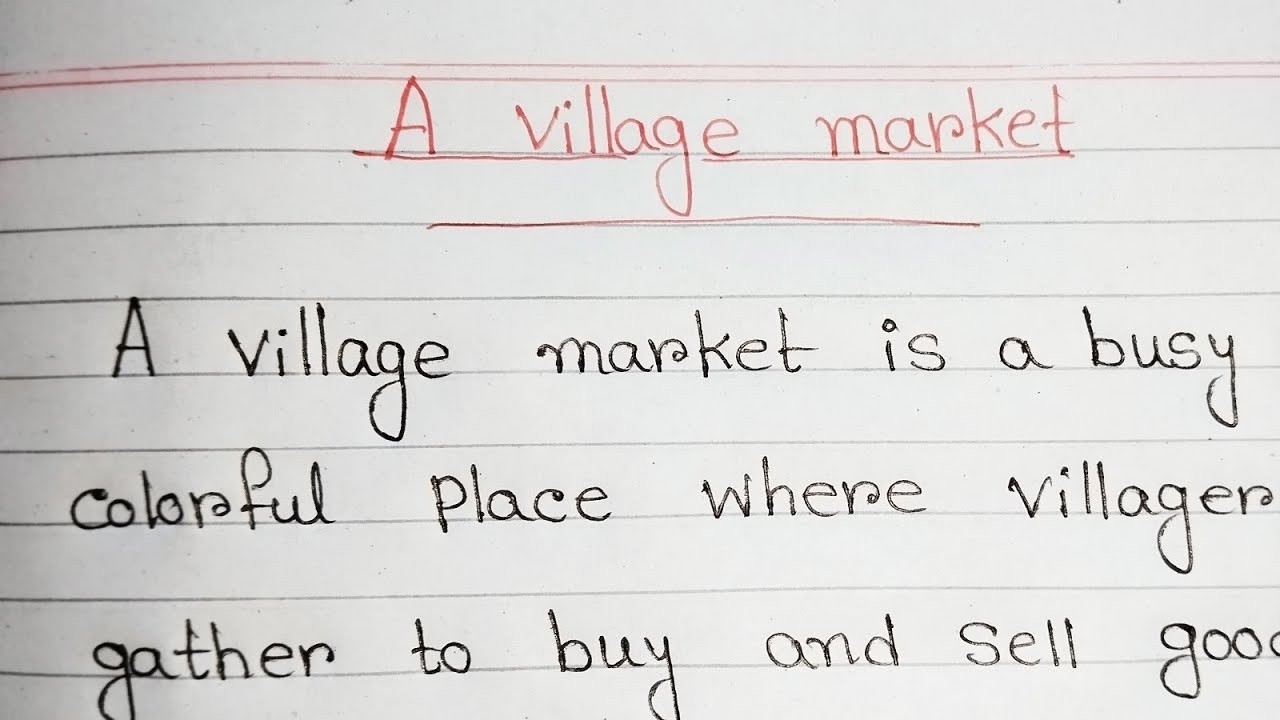 A village market
A village market is a busy
colorful place where villager
gather to buy and sell goo